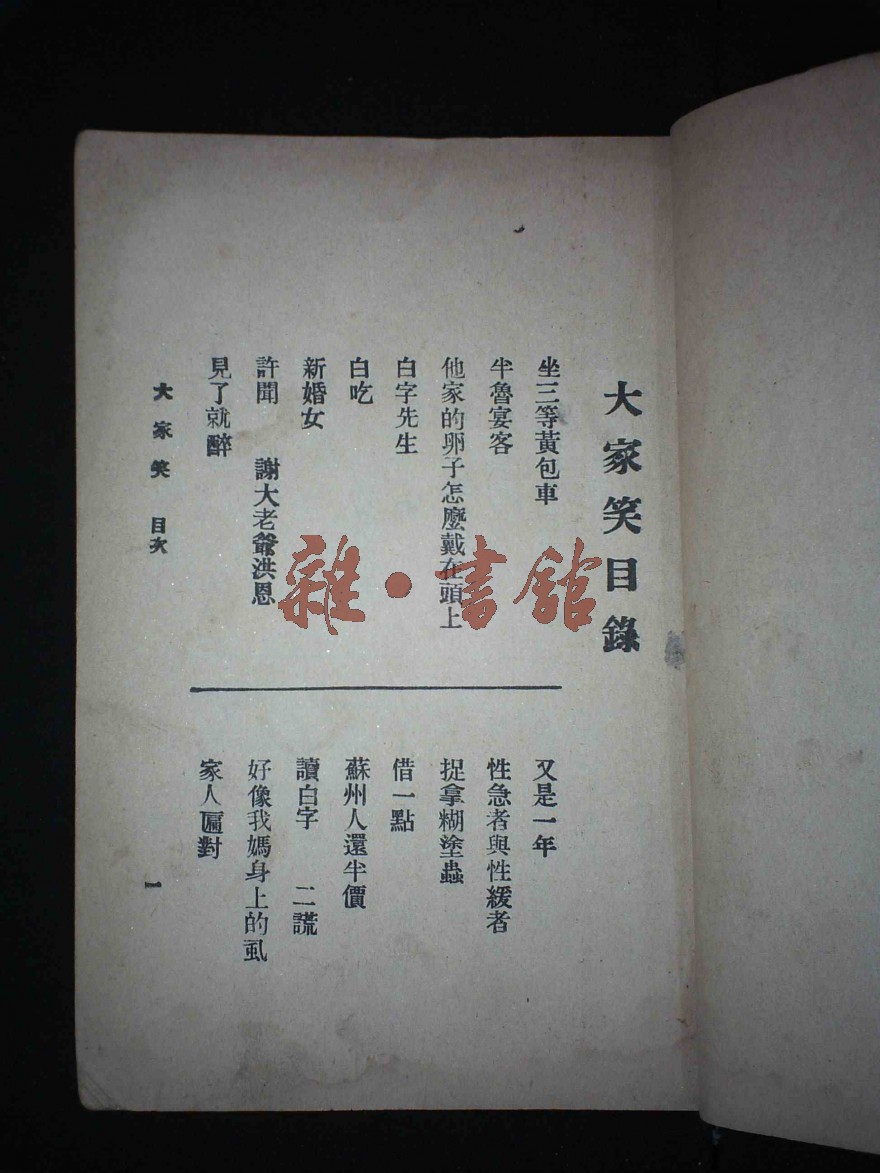 大家笑目錄
坐三等黃包車
半魯宴客
他家的卵子怎麼戴在頭上
白字先生
白吃
新婚女
許聞 謝大老爺洪恩
見了就醉
又是一年
性急者與性緩者
捉拿糊塗蟲
借一點
蘇州人還半價
讀白字 二謊
好像我媽身上的虱
家人匾對
大家笑 目次
一
雜·書館